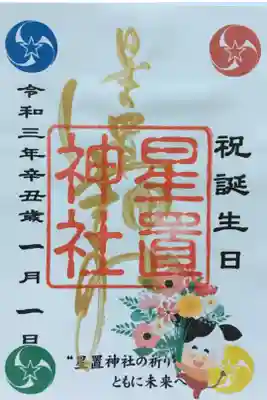 祝誕生日
星置神社
星置神社
令和三年辛丑歳 一月一日
"星置神社の祈り
ともに未来へ